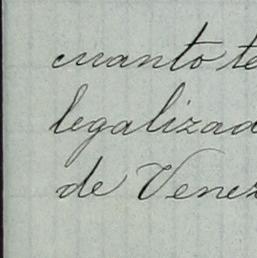 cuanto te
legalizad
de Venez